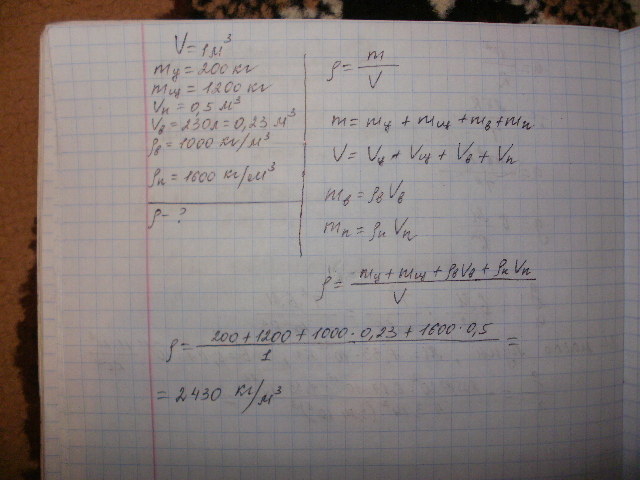 V = 1 м³
mц = 200 кг
mщ = 1200 кг
Vп = 0,5 м³
Vв = 230л = 0,23 м³
ρв = 1000 кг/м³
ρп = 1600 кг/м³
ρ - ?
ρ = m / V
m = mц + mщ + mв + mп
V = Vц + Vщ + Vв + Vп
mв = ρв Vв
mп = ρп Vп
ρ = (mц + mщ + ρвVв + ρпVп) / V
ρ = (200 + 1200 + 1000 · 0,23 + 1600 · 0,5) / 1 =
= 2430 кг/м³